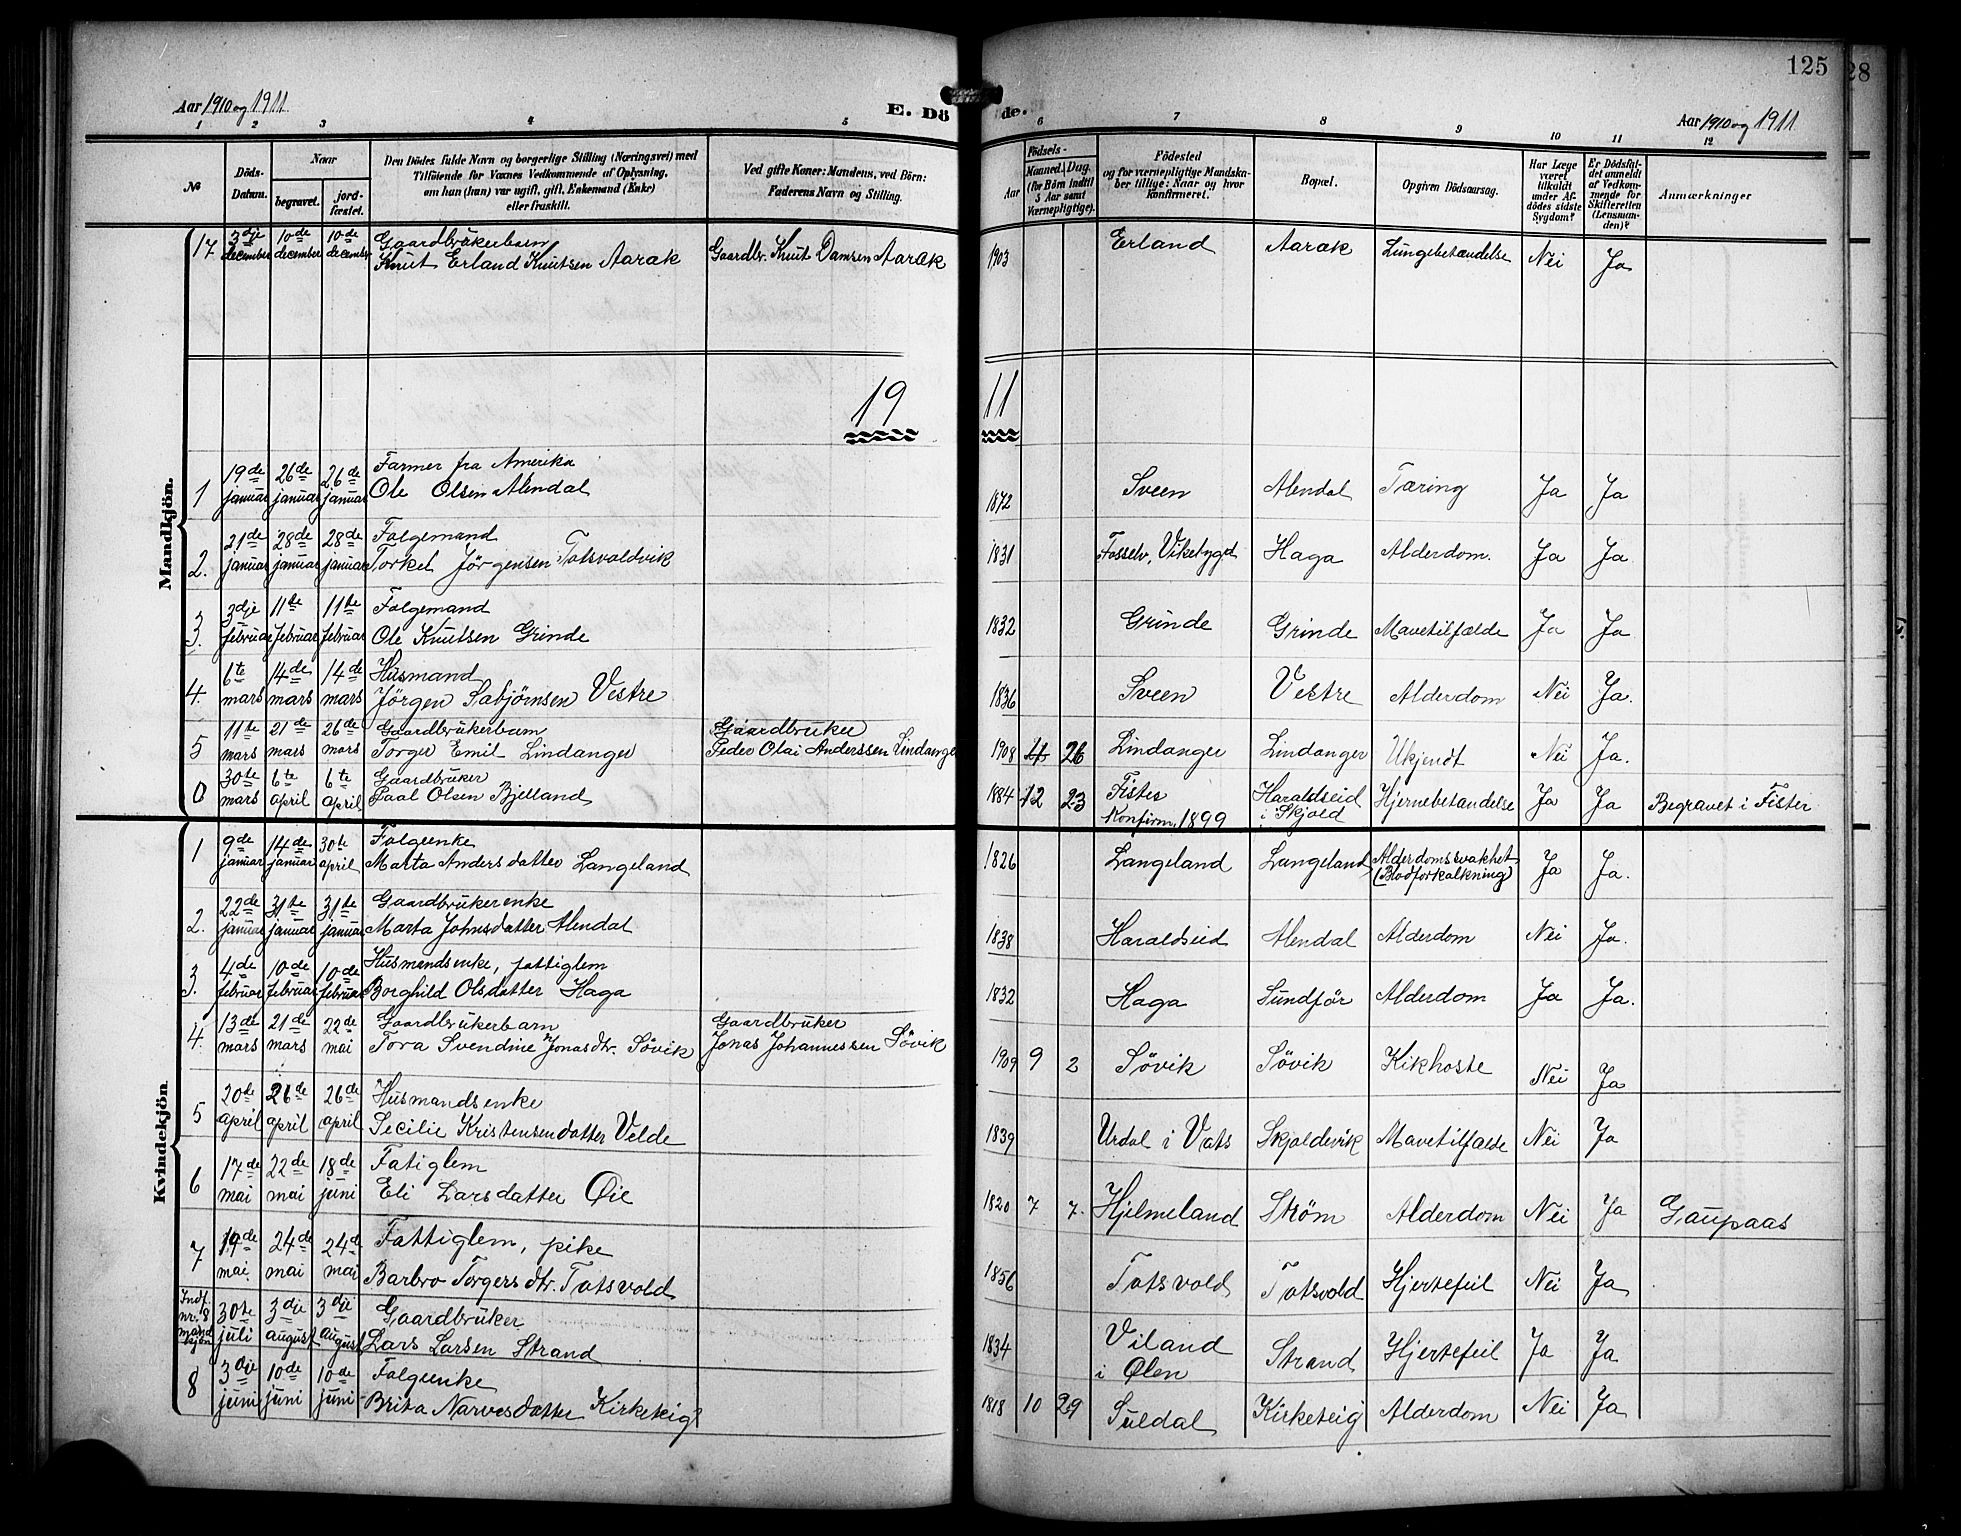 125
28
Aar 1910 og 1911
E. Dö
de.
Aar 1910 og 1911
1 2 3 4 5 6 7 8 9 10 11 12
No
Döds-Datum.
Naar
begravet.
jord-fæstet.
Den Dödes fulde Navn og borgerlige Stilling (Næringsvei) med
Tilföiende for Voxnes Vedkommende af Oplysning,
om han (hun) var ugift, gift, Enkemand (Enke)
eller fraskilt.
Ved gifte Koner: Mandens, ved Börn:
Faderens Navn og Stilling.
Födsels-
Aar
Maaned. Dag.
(for Börn indtil
5 Aar samt
Værnepligtige).
Födested
og for værnepligtige Mandska-
ber tillige: Naar og hvor
konfirmeret.
Bopæl.
Opgiven Dödsaarsag.
Har Læge
været
tilkaldt
under Af-
dödes sidste
Sygdom?
Er Dödsfal-
det anmeldt
af Vedkom-
mende for
Skifteretten
(Lensman-
den)?
Anmærkninger
Mandkjön.
17 3dje december 10de december 10de december Gaardbrukerbarn
Knut Erland Knutsen Aarak Gaardbr. Knut Aarak 1903 Erland Aarak Lungebetændelse Nei Ja
19 11
1 19de januar 26de januar 26de januar Farmer fra Amerika
Ole Olsen Alendal 1872 Sveen Alendal Tæring Ja Ja
2. 21de januar 28de januar 28de januar Folgemand
Torkel Jörgensen Tatsvoldvik 1831 Vikebygd Haga Alderdom. Ja Ja
3. 3dje februar 11te februar 11te februar Folgemand
Ole Knutsen Grinde 1832 Grinde Grinde Mavetilfælde Ja Ja
4. 6te mars 14de mars 14de mars Husmand
Jörgen Vestre 1836 Sveen Vestre Alderdom Nei Ja.
5 11te mars 21de mars 26de mars Gaardbrukerbarn Gaardbruker
Torger Emil Lindanger Peder Olai Anderssen Lindanger 1908 11 26 Lindanger Lindanger Ukjendt Nei Ja.
0 30te mars 6te april 6te april Gaardbruker
Paal Olsen Bjelland 1884 12 23 Fister
Konfirm. 1899 Haraldseid
i Skjold Hjernebetændelse Ja Ja Begravet i Fister
Kvindekjön.
1 9de januar 14de januar 30te april Folgeenke
Marta Andersdatter Langeland 1826 Langeland Langeland Alderdomssvakhet
(Blodforkalkning) Ja Ja.
2. 22de januar 31te januar 31te januar Gaardbrukerenke
Marta Johnsdatter Alendal 1838 Haraldseid Alendal Alderdom Nei Ja.
3. 4de februar 10de februar 10de februar Husmandsenke, fattiglem
Borghild Olsdatter Haga 1832 Haga Sundför Alderdom Ja Ja.
4. 13de mars 21de mars 22de mai Gaardbrukerbarn Gaardbruker
Tora Svendine Jonasdtr. Sövik Jonas Johannessen Sövik 1909 9 2 Sövik Sövik Kikhoste Nei Ja
5 20de april 26de april 26de april Husmandsenke
Secilie Kristensendatter Velde 1839 Urdal i Vats Skjoldevik Mavetilfælde Nei Ja
6 17de mai 22de mai 18de juni Fatiglem
Eli Larsdatter Øie 1820 7 7. Hjelmeland Strøm Alderdom Nei Ja Gaupaas
7 19de mai 24de mai 24de mai Fattiglem, pike
Barbro Torgersdtr. Tatsvold 1856 Tatsvold Tatsvold Hjertefeil Nei Ja
Indf. nr. 8 mandkjön 30te juli 3dje august 3dje august Gaardbruker
Lars Larsen Strand 1834 Viland
i Ølen Strand Hjertefeil Ja Ja
8 3dje juni 10de juni 10de juni Folgeenke
Brita Narvesdatter Kirketeig 1818 10 29 Suldal Kirketeig Alderdom Nei Ja